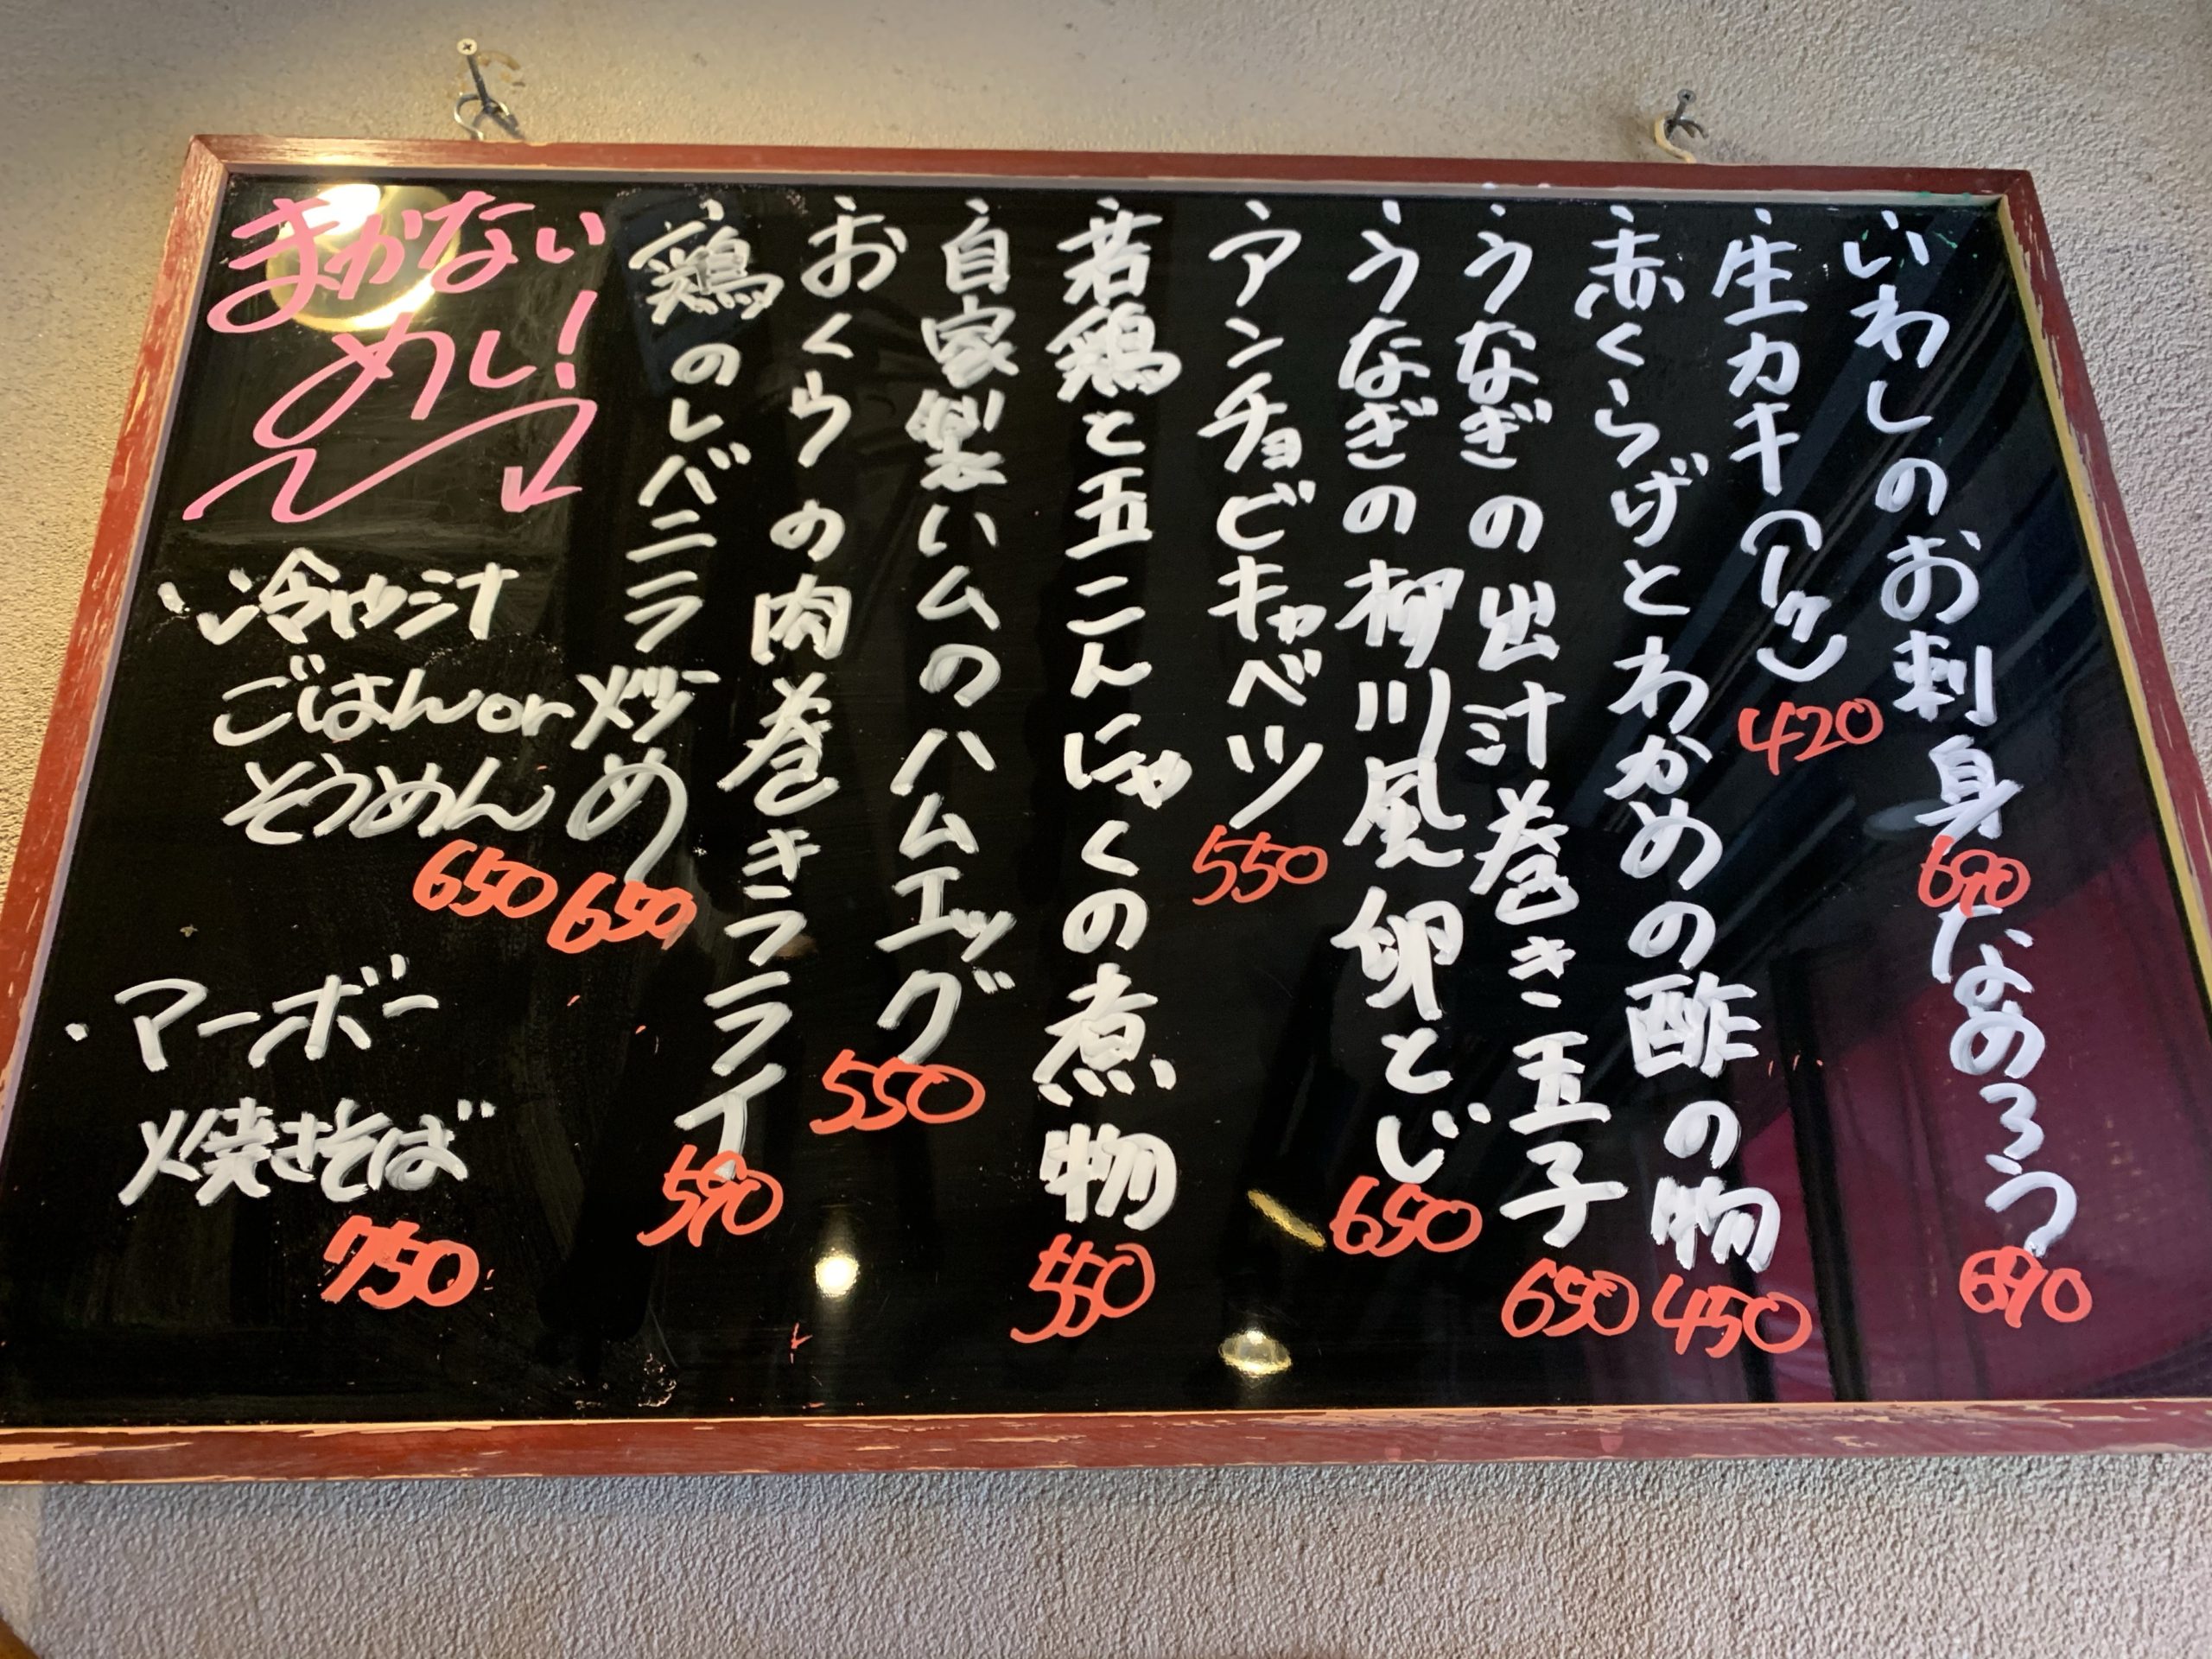 ・いわしのお刺身 690 なめろう 690
・生カキ(1ケ) 420
・赤くらげとわかめの酢の物 450
・うなぎの出汁巻き玉子 650
・うなぎの柳川風卵とじ 650
・アンチョビキャベツ 550
・若鶏と玉こんにゃくの煮物 550
・自家製ハムのハムエッグ 550
・おくらの肉巻きフライ 590
・鶏のレバニラ炒め 650
まかない
めし!
・冷や汁
ごはんor
そうめん
650
・マーボー
焼きそば
750